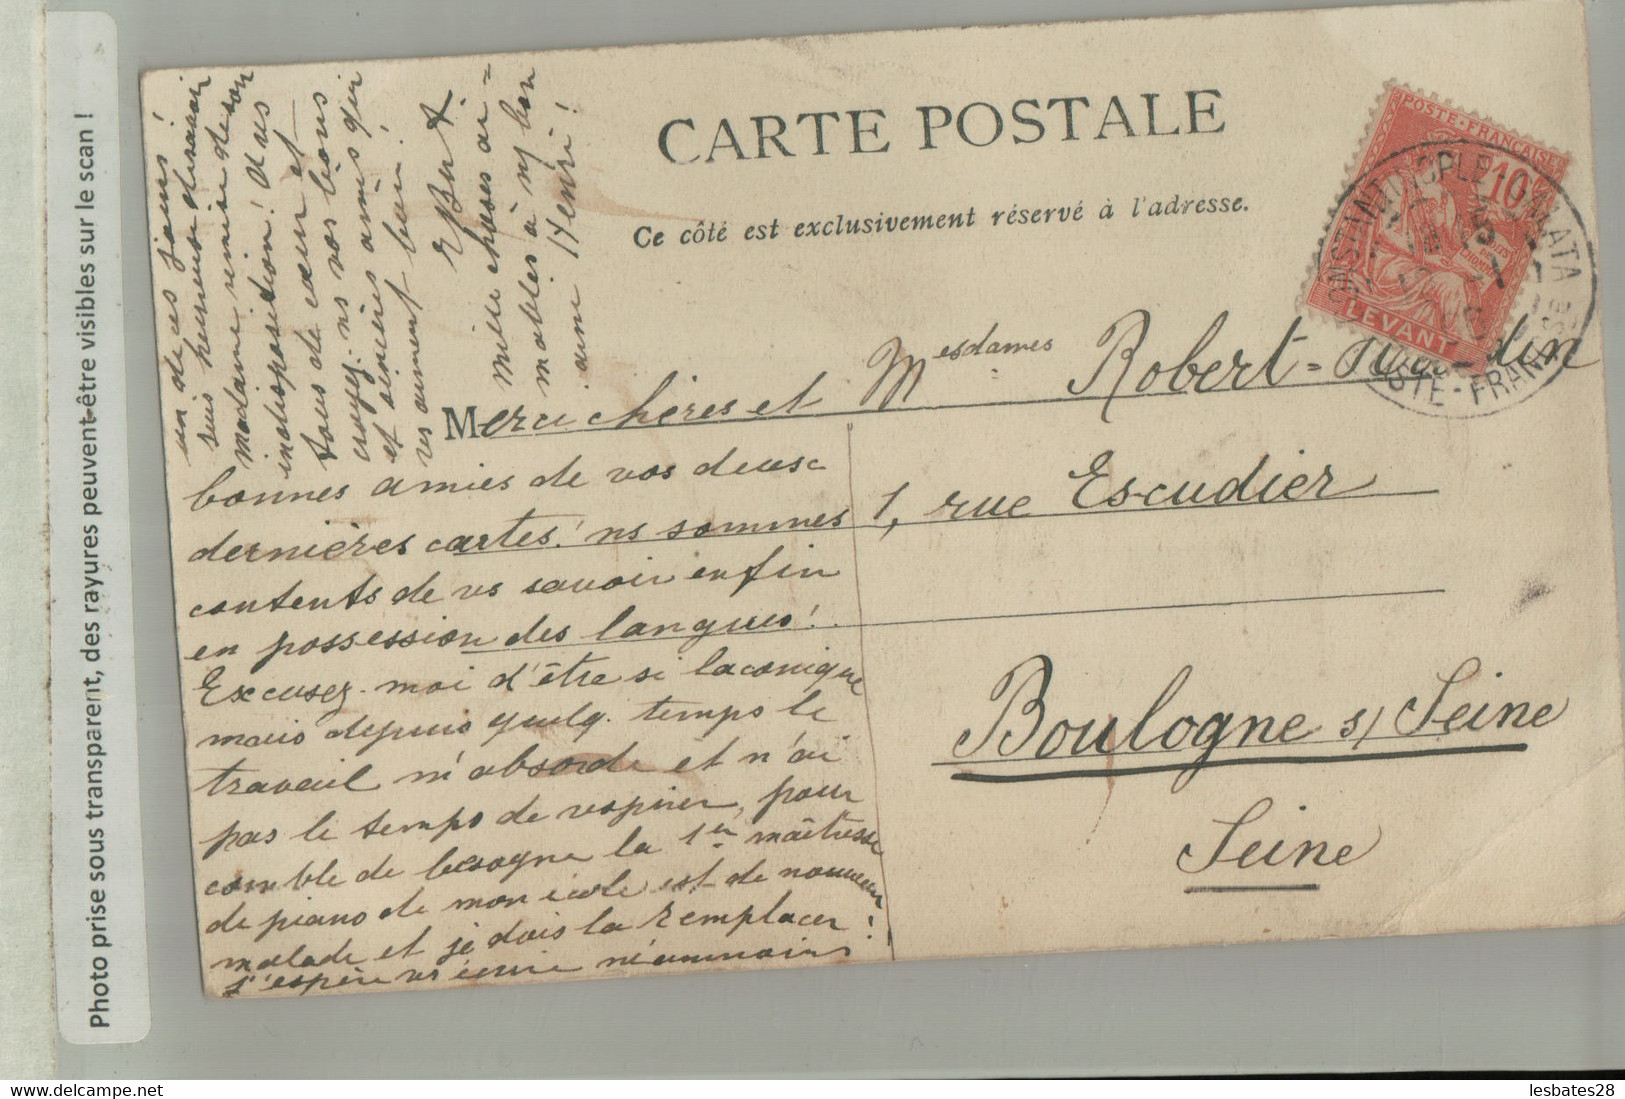 Photo prise sous transparent, des rayures peuvent-être visibles sur le scan !
CARTE POSTALE
Ce côté est exclusivement réservé à l'adresse.
POSTE-FRANÇAISE
10
LEVANT
CONSTANTINOPLE-GALATA
POSTE-FRANÇAISE
Mesdames Robert-
1, rue Escudier
Boulogne s/ Seine
Seine
Merci chères et
bonnes amies de vos deux
dernières cartes! ns sommes
contents de vs savoir enfin
en possession des langues!
Excusez-moi d'être si laconique
mais depuis quelq. temps le
travail m'absorde et n'ai
pas le temps de respirer, pour
comble de besogne la 1er maîtresse
de piano de mon école est de nouveau
malade et je dois la remplacer!
J'espère vs écrire néanmoins
un de ces jours!
suis heureuse
madame remise de son
indisposition!
tous de cœur et
croyez-ns vos bons
et sincères amis qui
vs aiment bien!
Mille choses ai=
mables à n/ bon
ami Henri!
lesbates28